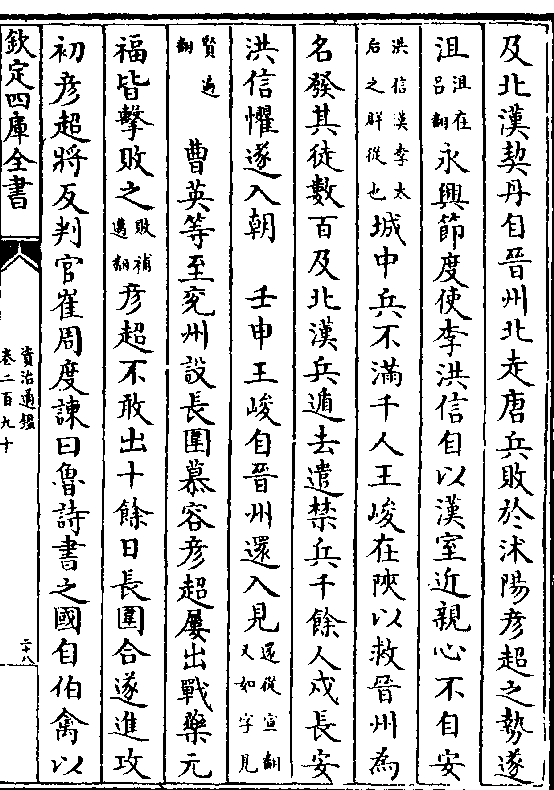 及北漢契丹自晉州北走唐兵敗於沭陽彦超之勢遂
沮沮在呂翻永興節度使李洪信自以漢室近親心不自安
洪信漢李太后之群從也城中兵不滿千人王峻在陜以救晉州為
名發其徒數百及北漢兵遁去遣禁兵千餘人戍長安
洪信懼遂入朝　壬申王峻自晉州還入見還從宣翻又如字見
賢遍翻　曹英等至兖州設長圍慕容彦超屢出戰藥元
福皆擊敗之敗補邁翻彦超不敢出十餘日長圍合遂進攻
初彦超將反判官崔周度諫曰魯詩書之國自伯禽以
欽定四庫全書
資治通鑑
卷二百九十
二十八